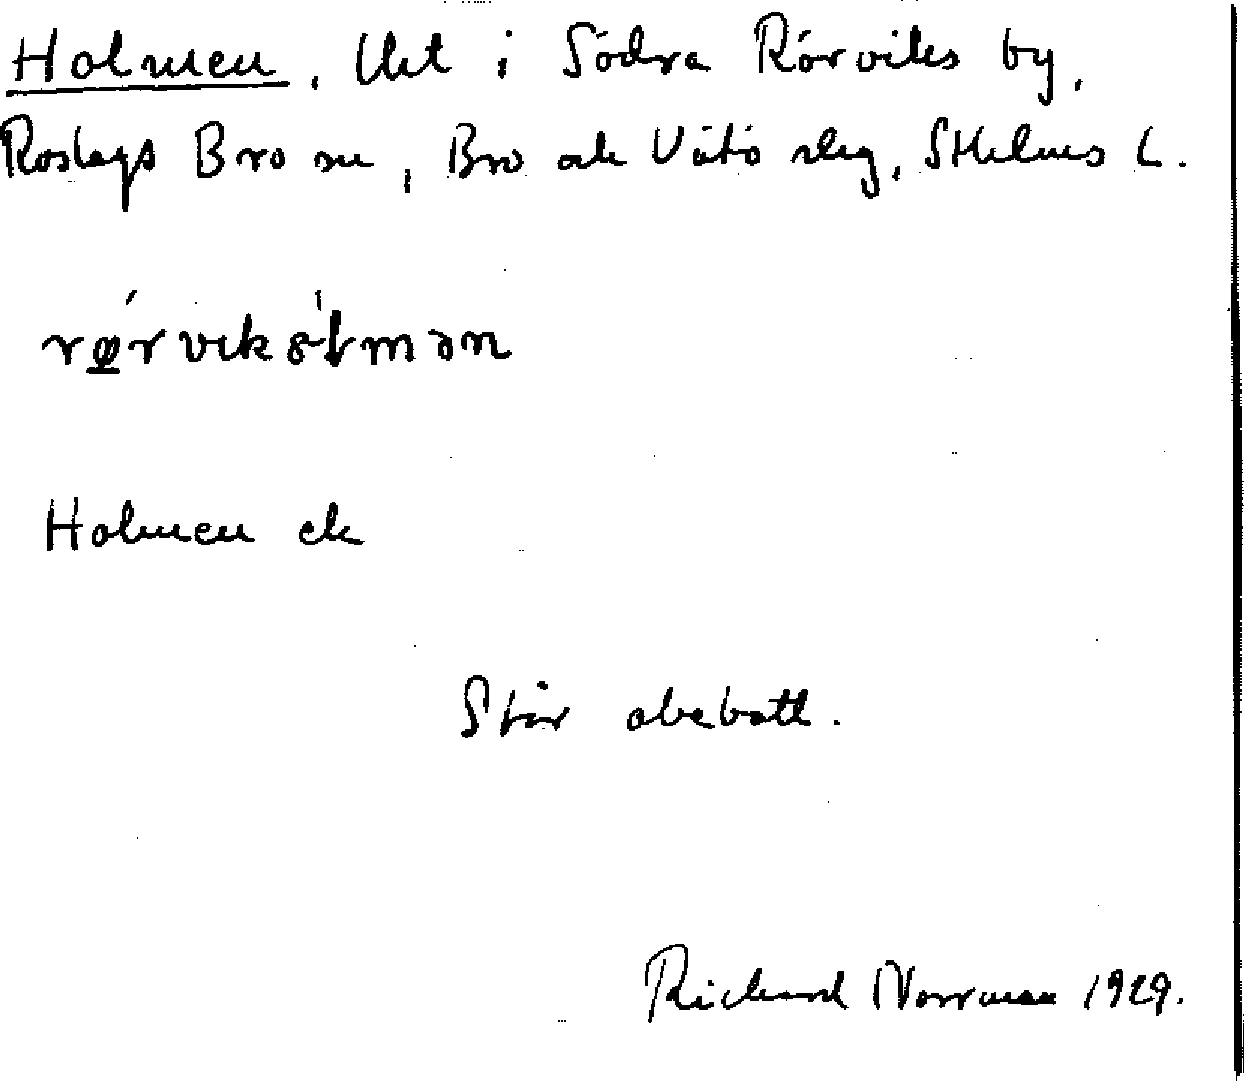 Holmen, Uet i Södra Rörviks by,
Roslags Bro sn, Bro ock Vätö slag, Sthlms L.
rørviksɷɫmən
Holmen ek
Står obebott.
Richard Norrman 1929.